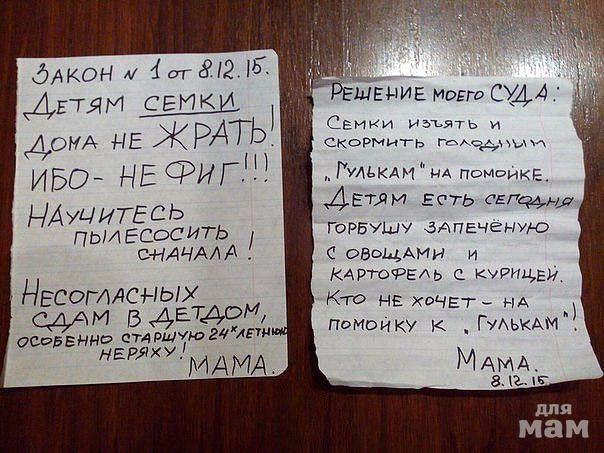 ЗАКОН N 1 от 8.12.15.
ДЕТЯМ СЕМКИ
ДОМА НЕ ЖРАТЬ!
ИБО - НЕ ФИГ!!!
НАУЧИТЕСЬ
ПЫЛЕСОСИТЬ
СНАЧАЛА!
НЕСОГЛАСНЫХ
СДАМ В ДЕТДОМ,
ОСОБЕННО СТАРШУЮ 24х ЛЕТНЮЮ
НЕРЯХУ!
МАМА.
РЕШЕНИЕ МОЕГО СУДА:
СЕМКИ ИЗЪЯТЬ И
СКОРМИТЬ ГОЛОДНЫМ
„ГУЛЬКАМ" НА ПОМОЙКЕ.
ДЕТЯМ ЕСТЬ СЕГОДНЯ
ГОРБУШУ ЗАПЕЧЁНУЮ
С ОВОЩАМИ И
КАРТОФЕЛЬ С КУРИЦЕЙ.
КТО НЕ ХОЧЕТ - НА
ПОМОЙКУ К „ГУЛЬКАМ"!
МАМА.
8.12.15.
для
мам